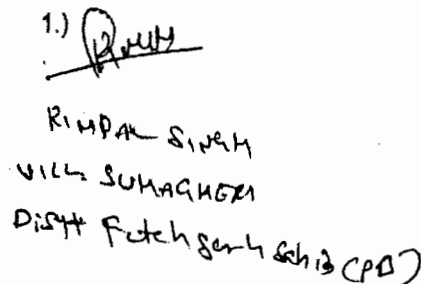 1.)
RIMPAL SINGH
VILL SUHAGHERI
Distt Fatehgarh Sahib (PB)